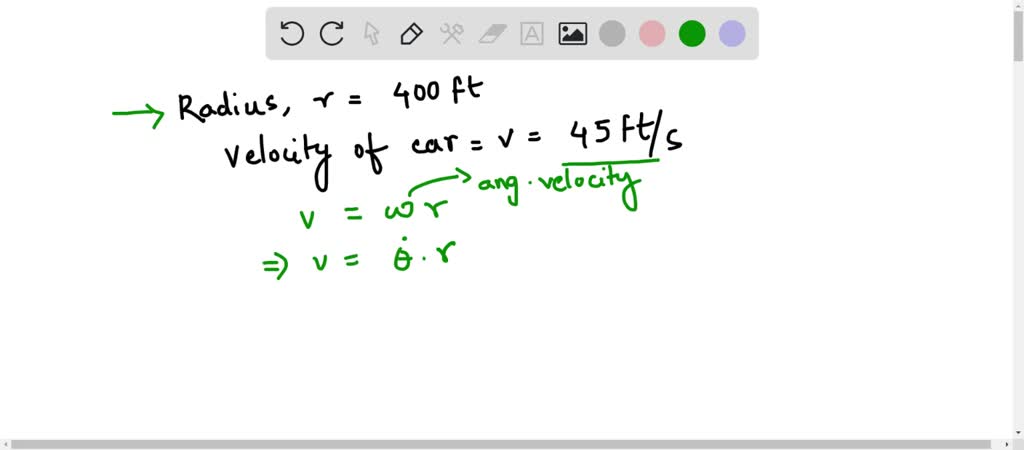 → Radius, r = 400 ft
Velocity of car = v = 45 ft/s
v = ω r → ang. velocity
⇒ v = θ̇ . r